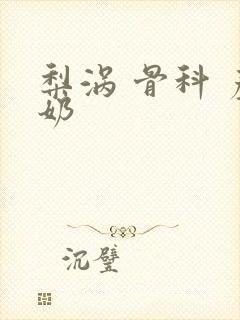 梨涡 骨科
奶
沉璧